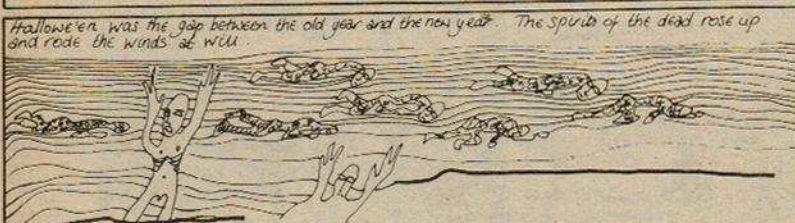 Hallowe'en was the gap between the old year and the new year. The spirits of the dead rose up
and rode the winds at will.